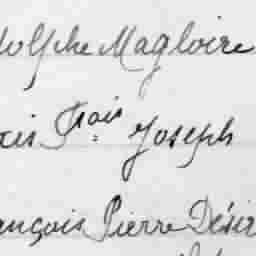 dolphe Magloire
xis Fçois Joseph
ançois Pierre Désir